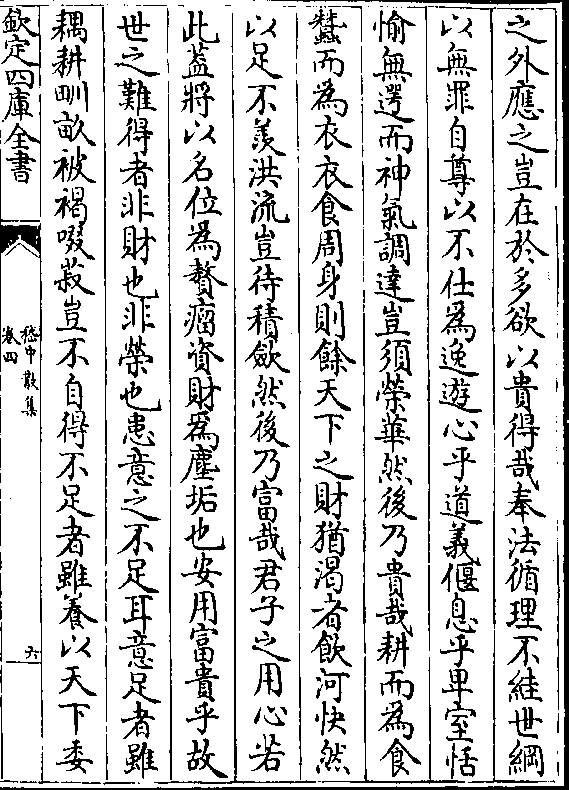 之外應之豈在於多欲以貴得哉奉法循理不絓世網
以無罪自尊以不仕為逸遊心乎道義偃息乎卑室恬
愉無遌而神氣調達豈須榮華然後乃貴哉耕而為食
蠶而為衣衣食周身則餘天下之財猶渴者飲河快然
以足不羨洪流豈待積歛然後乃富哉君子之用心若
此葢將以名位為贅瘤資財為塵垢也安用富貴乎故
世之難得者非財也非榮也患意之不足耳意足者雖
耦耕甽畝被褐啜菽豈不自得不足者雖養以天下委
欽定四庫全書
嵇中散集
卷四
六